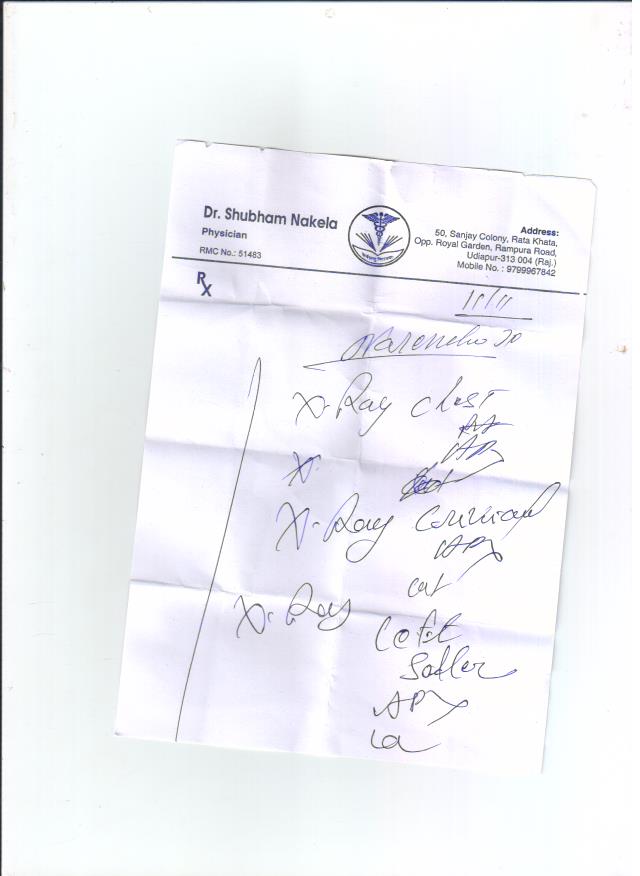 Dr. Shubham Nakela
Physician
RMC No.: 51483
Address:
50, Sanjay Colony, Rata Khata,
Opp. Royal Garden, Rampura Road,
Udiapur-313 004 (Raj.)
Mobile No. : 9799967842
Rx
11/11
X-Ray Chest
AP
X-Ray
AP
X-Ray
Left
AP